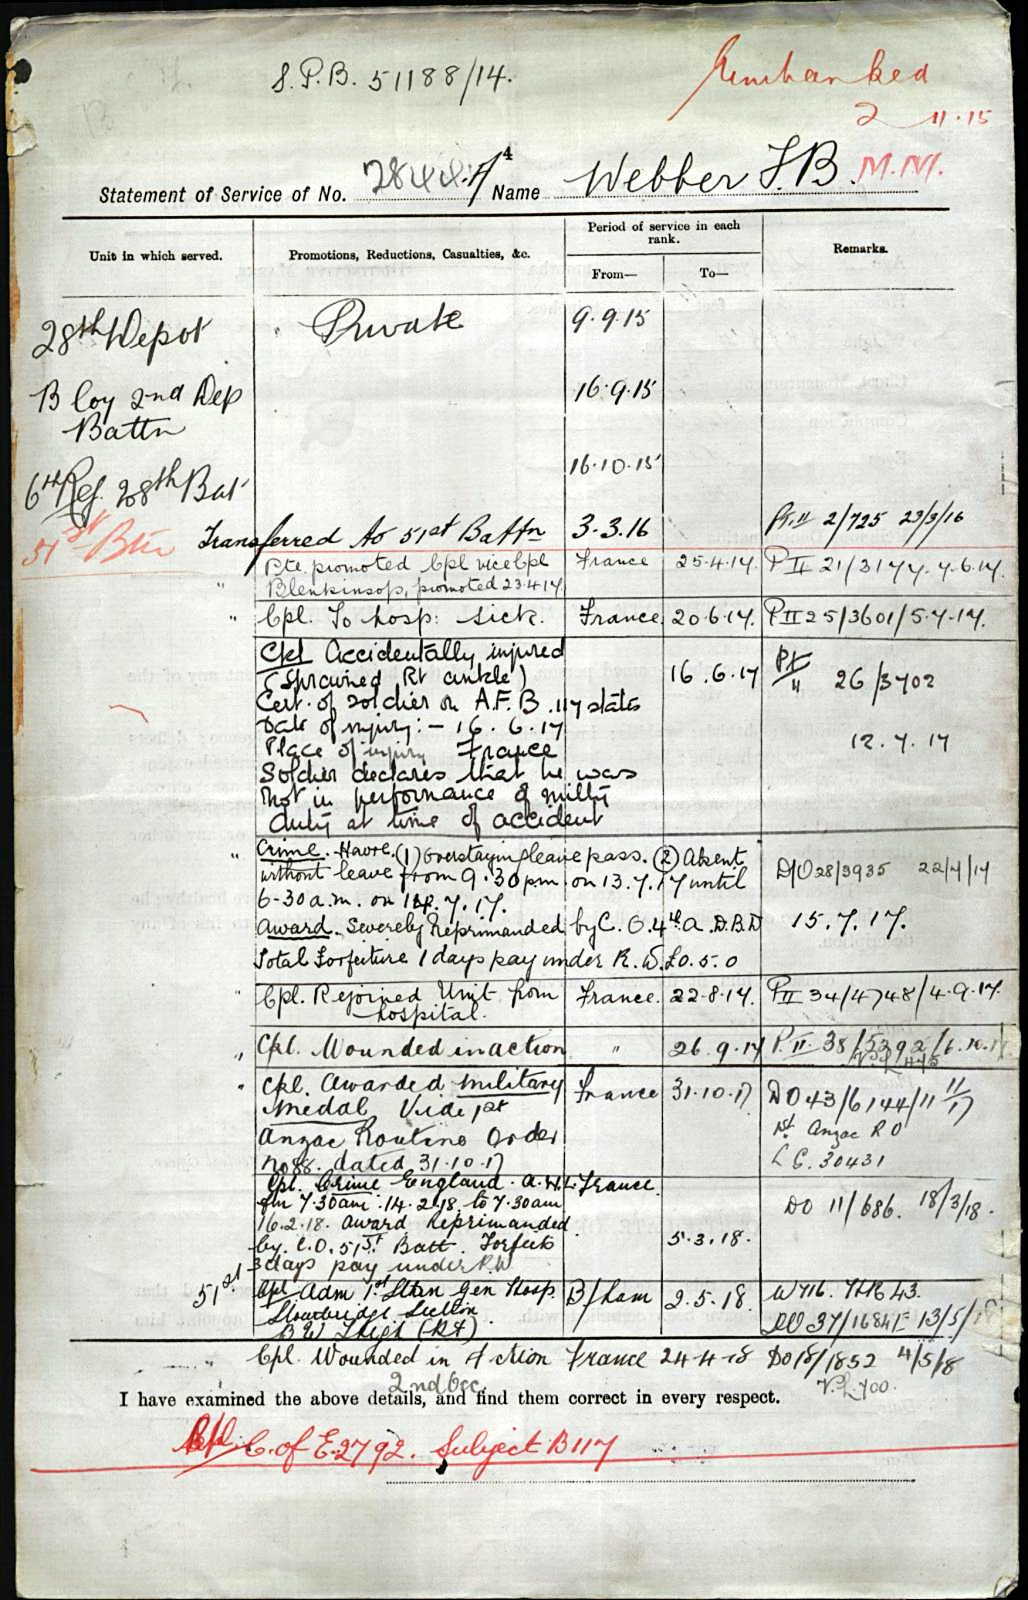 S.P.B. 51188/14.
Embarked
2 11.15
4
Statement of Service of No. Name Webber F.B. M.M.
Unit in which served.
Promotions, Reductions, Casualties, &c.
Period of service in each rank.
From—
To—
Remarks.
28th Depot Private 9.9.15
B Coy 2nd Dep 16.9.15
Battn
6th Ref. 28th Bat 16.10.15
51st Btn Transferred to 51st Battn 3.3.16 Pt.II 2/725 23/3/16
Pte promoted Cpl vice Cpl France 25.4.17 P II 21/3177. 7.6.17.
" Blenkinsop, promoted 23.4.17
" Cpl. To hosp: sick. France 20.6.17. P II 25/3601/5.7.17.
Cpl Accidentally injured
(Sprained Rt ankle) 16.6.17 Pt II 26/3702
Cert. of soldier on A.F.B. 117 states
Date of injury:- 16.6.17
Place of injury France 12.7.17
Soldier declares that he was
not in performance of milty
duty at time of accident
" Crime. Havre. (1) Overstaying leave pass. (2) Absent
without leave from 9.30pm on 13.7.17 until DO28/3935
6-30 a.m. on 14.7.17.
Award. Severely Reprimanded by C.O. 4th A.D.B.D 15.7.17.
Total Forfeiture 1 days pay under R.W. £0.5.0
" Cpl. Rejoined Unit from France. 22.8.17. P II 34/4748/4.9.17.
hospital.
" Cpl. Wounded in action " 26.9.17 P. II. 38/5392/6.10.17
" Cpl. Awarded Military France 31.10.17 DO 43/6144/11 11/17
Medal Vide 1st
1st Anzac R O
Anzac Routine Order
No 88. dated 31.10.17 L G. 30431
Cpl. Crime England. A.W.L. France.
fm 7.30am 14.2.18. to 7.30am DO 11/686. 18/3/18.
16.2.18. Award Reprimanded
by. C.O. 51st Batt. Forfeits 5.3.18.
3 days pay under R.W
51st Cpl Adm 1st Sthn Gen Hosp. B/ham 2.5.18. W716. 43.
Stourbridge Section DO 37/1684E 13/5/18
G.S.W Thigh (Rt)
" Cpl. Wounded in Action France 24.4.18 DO 18/1852 4/5/18
2nd Occ. 700.
I have examined the above details, and find them correct in every respect.
Cpl. C. of E. 2792. Subject B117